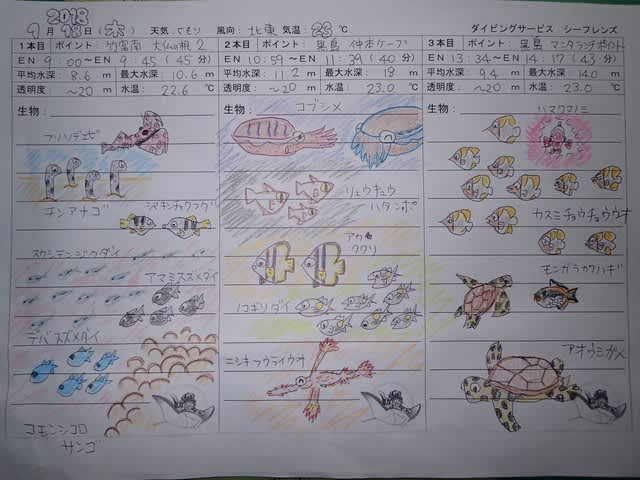 2018
1月18日(木) 天気 くもり 風向: 北東 気温: 23℃ ダイビングサービス シーフレンズ
1本目 ポイント: 竹富南 大仏の根2
EN 9:00〜EN 9:45 (45分)
平均水深: 8.6m 最大水深: 10.6m
透明度 〜20m 水温: 22.6℃
生物:
キンアナゴ
シマキンチャクフグ
スカシテンジクダイ
アマミスズメダイ
デバスズメダイ
コモンシコロ
サンゴ
2本目 ポイント: 黒島 仲本ケーブ
EN 10:59〜EN 11:39 (40分)
平均水深: 11.2m 最大水深: 18m
透明度: 〜20m 水温: 23.0℃
生物:
コブシメ
リュウキュウ
ハタンポ
アカ
ククリ
ノコギリダイ
ニシキフウライウオ
3本目 ポイント: 黒島 マンタランチポイント
EN 13:34〜EN 14:17 (43分)
平均水深: 9.4m 最大水深: 14.0m
透明度: 〜20m 水温: 23.0℃
生物:
ハマクマノミ
カスミチョウチョウウオ
モンガラカワハギ
アオウミガメ